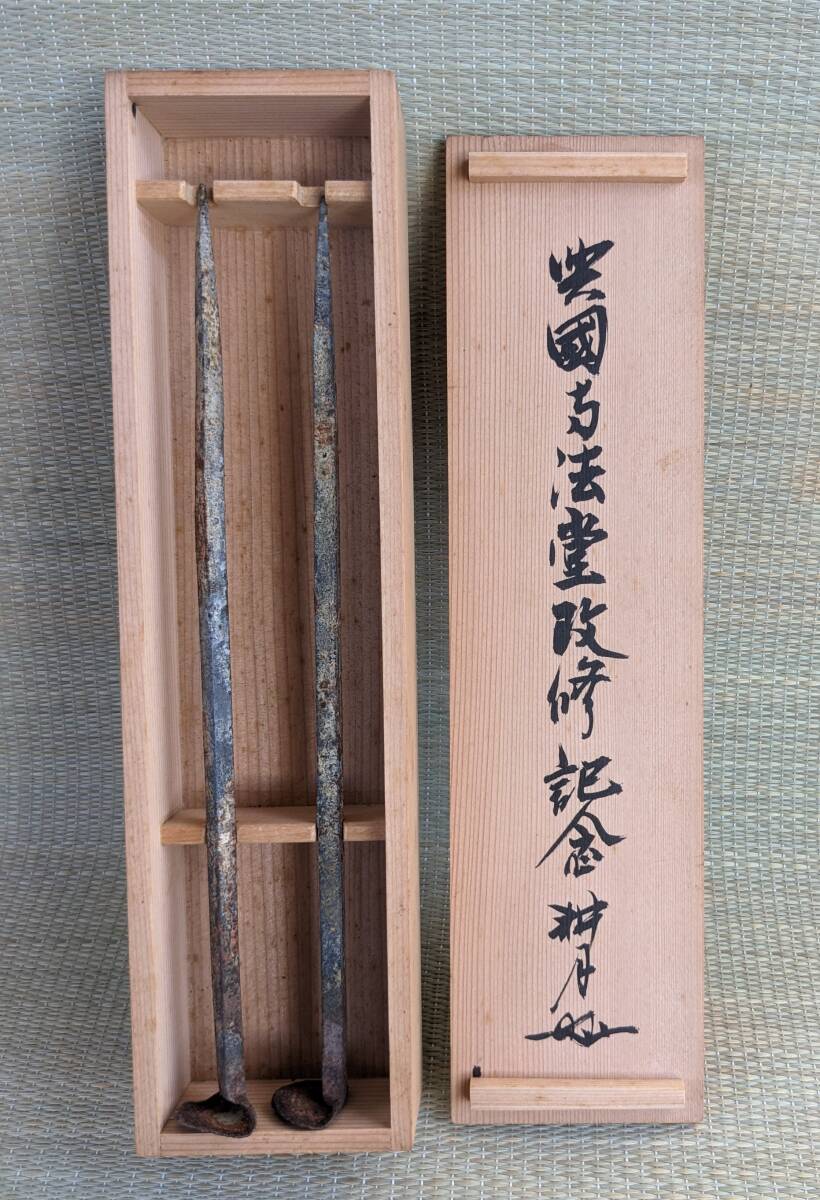 興國寺法堂改修記念 耕月